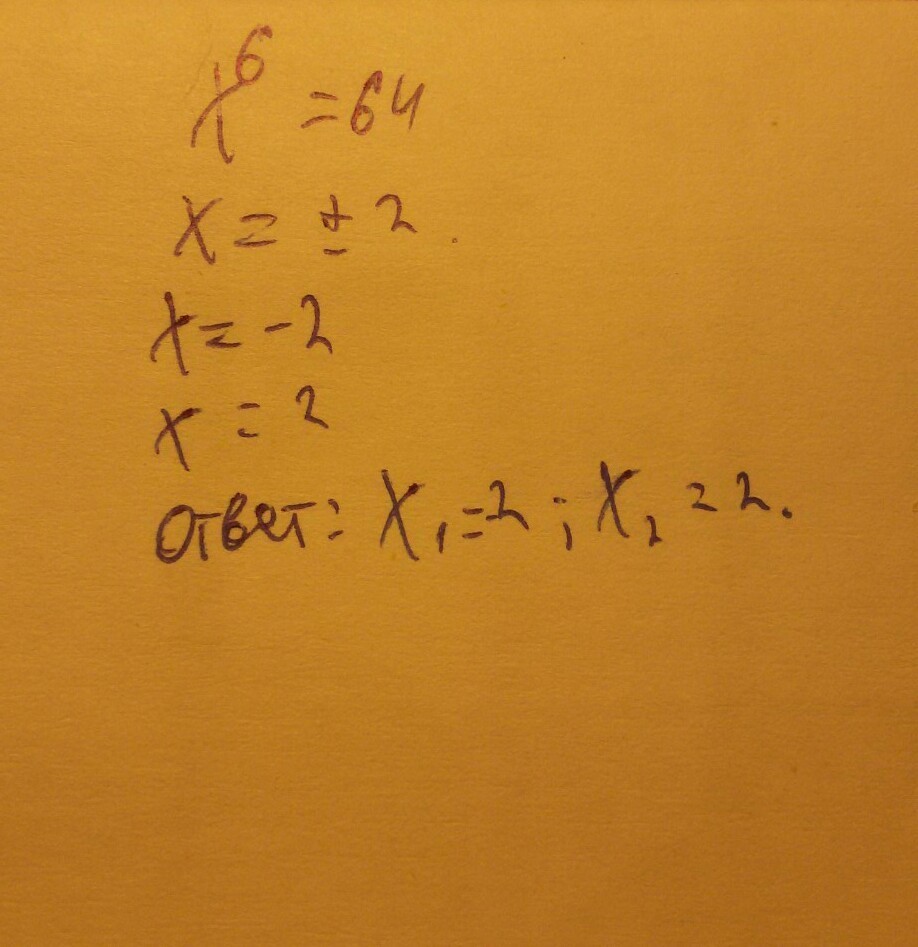 x⁶ = 64
x = ± 2.
x = -2
x = 2
Ответ: x₁=-2; x₂ = 2.